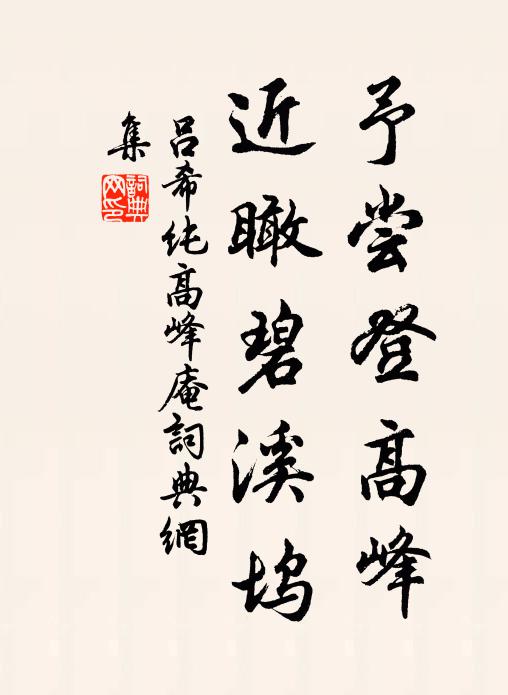 予尝登高峰
近瞰碧溪坞
吕希纯高峰庵詞典網
集
詞典
网印